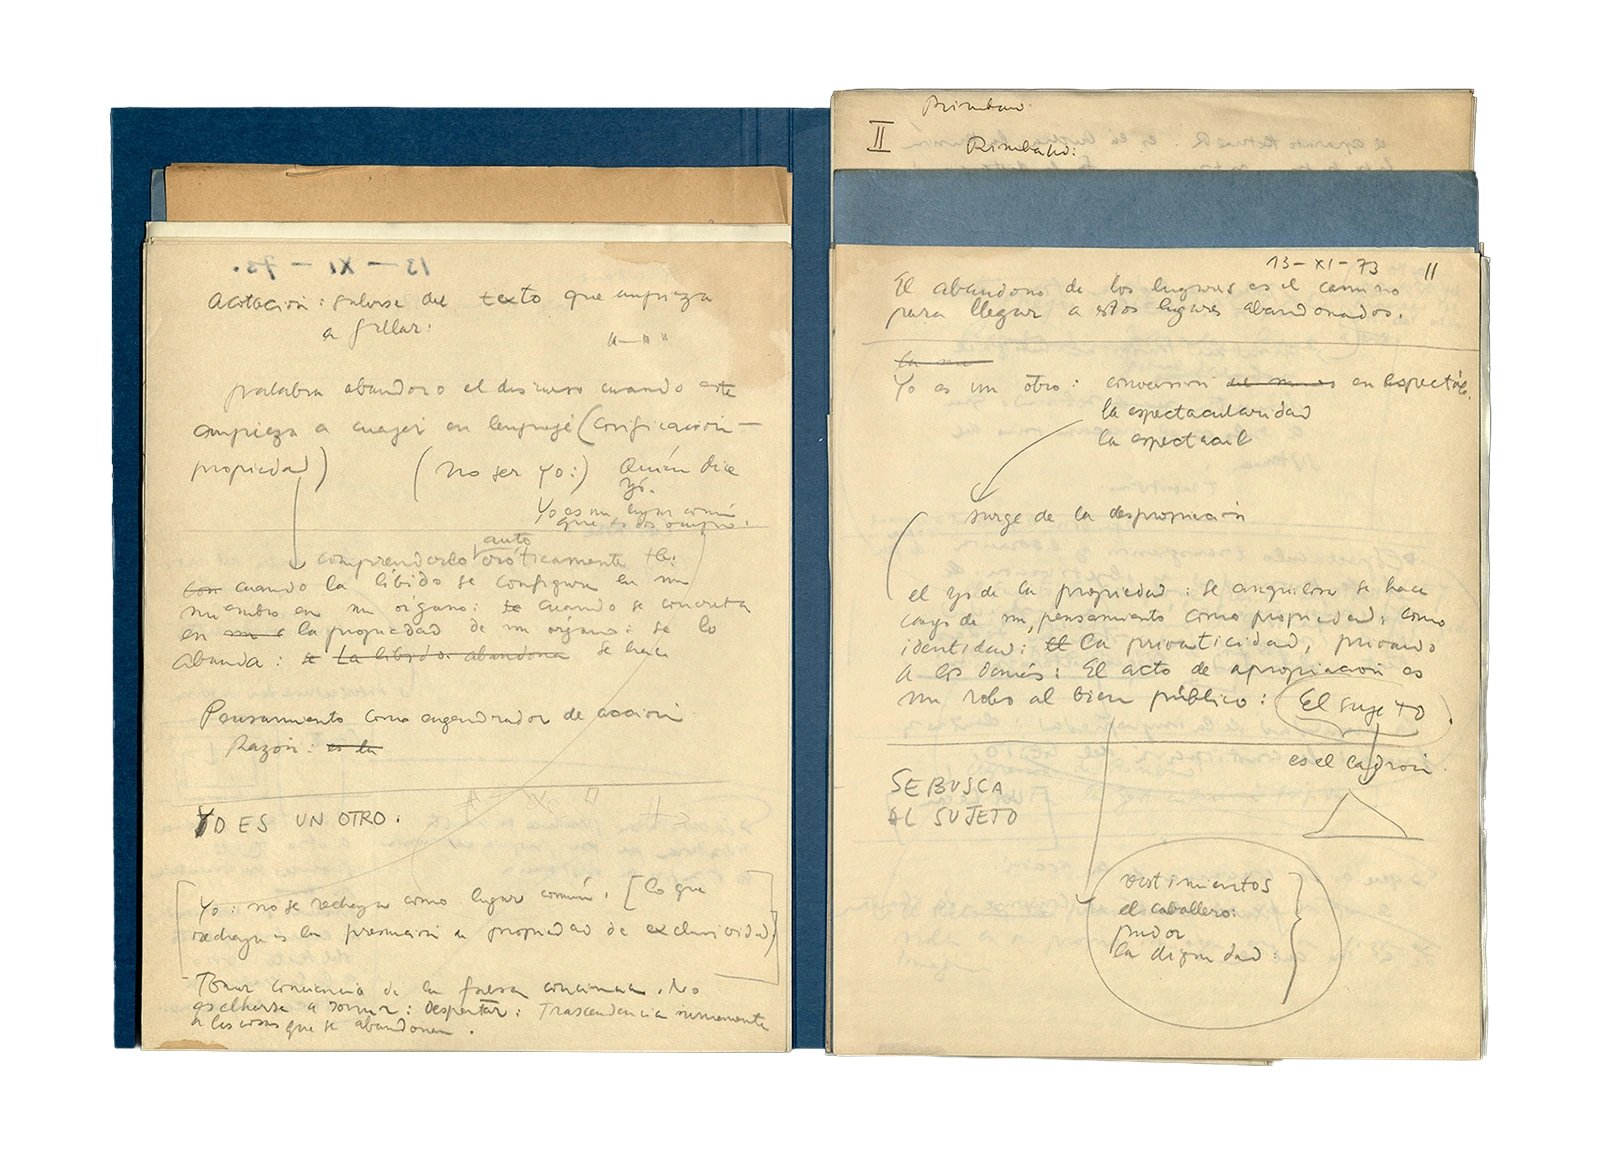 acotación: salirse del texto que empieza
a fallar:
"—" "
palabra abandono el discurso cuando este
empieza a cuajar en lenguaje (cosificación—
propiedad) (No ser yo:) Quién dice
yo.
Yo es un lugar común
que todos ocupan.
auto
comprenderlo eróticamente
cuando la líbido se configura en un
miembro en un órgano: cuando se concreta
en la propiedad de un órgano: se lo
abanda: se La libido abandona se hace
Pensamiento como engendrador de acción
Razón: es la
YO ES UN OTRO:
Yo: no se rechaza como lugar común. [lo que
rechaza es la presunción de propiedad de exclusividad]
Tomar conciencia de la falsa conciencia. No
echarse a dormir: Despertar: Trascendencia
a las cosas que se abandonan.
Rimbaud
II Rimbaud:
13-XI-73 11
El abandono de los lugares es el camino
para llegar a estos lugares abandonados.
Yo es un otro: conversión en espectác.
la espectacularidad
la espectacul
surge de la despropiación
el yo de la propiedad: se anquilosa se hace
cargo de un pensamiento como propiedad: como
identidad: la privaticidad, privando
a los demás: El acto de apropiación es
un robo al bien público: El sujeto
es el ladrón.
SE BUSCA
AL SUJETO
vestimientos
el caballero:
pudor
la dignidad: